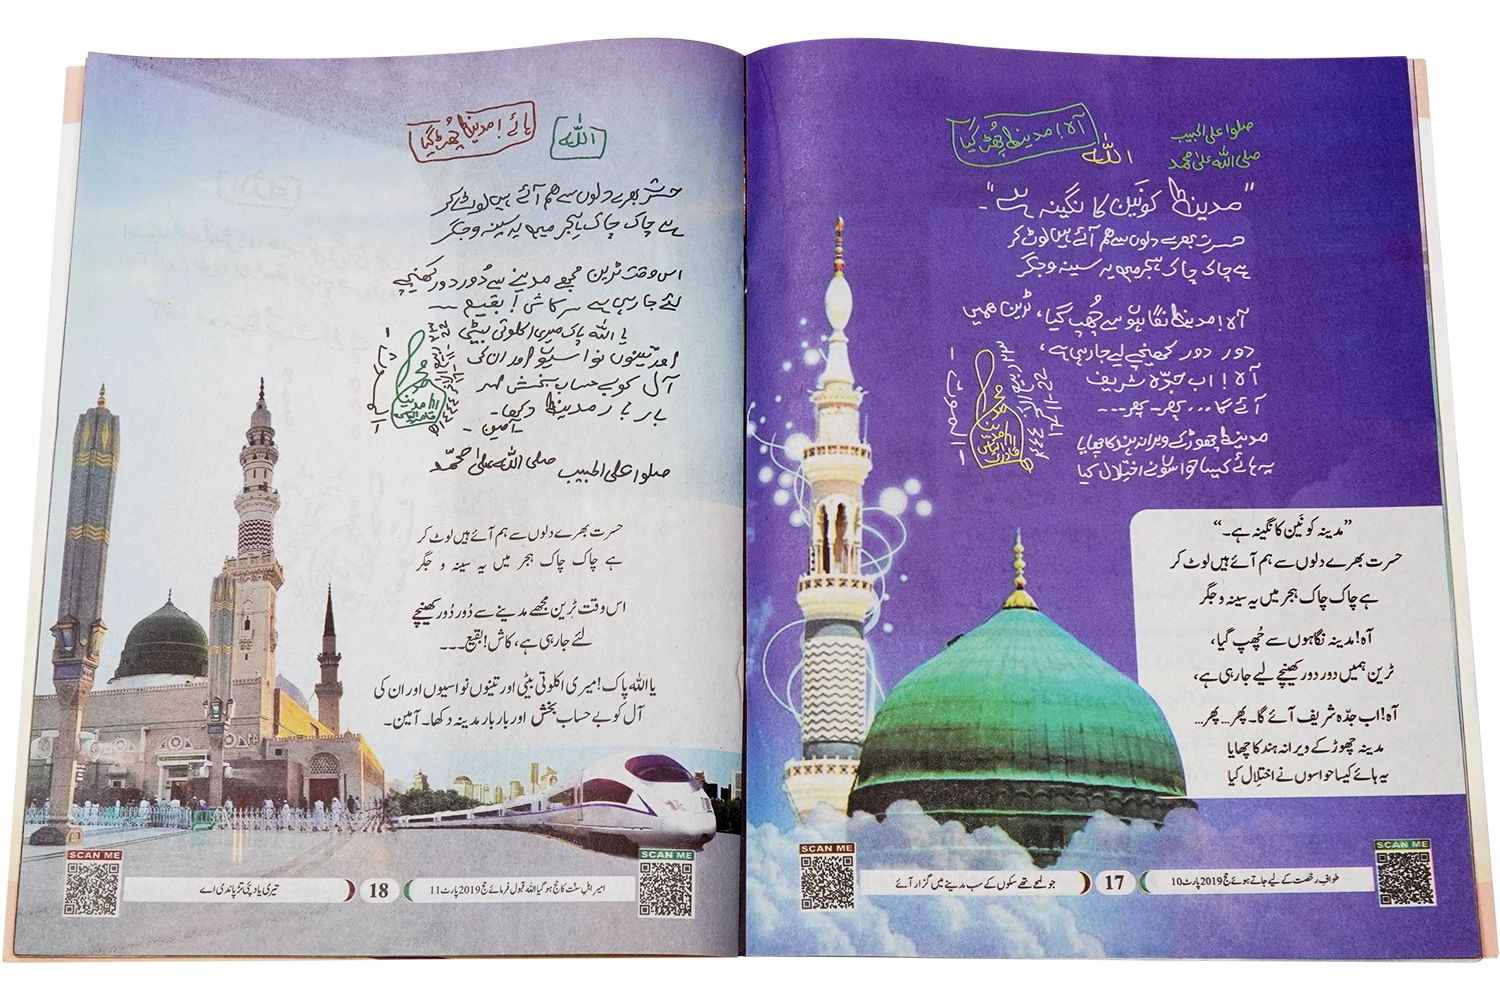 آہ! مدینہ چھُٹ گیا
اللہ
صلوا علی الحبیب
صلی اللہ علیٰ محمد
"مدینہ کونَین کا نگینہ ہے"۔
حسرت بھرے دلوں سے ہم آئے ہیں لوٹ کر
ہے چاک چاک ہجر میں یہ سینہ و جگر
آہ! مدینہ نگاہوں سے چُھپ گیا، ٹرین ہمیں
دور دور کھینچے لیے جا رہی ہے،
آہ! اب جدّہ شریف
آئے گا... پھر۔ پھر۔۔۔
مدینہ چھوڑ کے ویرانہ ہند کا چھایا
یہ ہائے کیسا حواسوں نے اختِلال کیا
"مدینہ کونَین کا نگینہ ہے۔"
حسرت بھرے دلوں سے ہم آئے ہیں لوٹ کر
ہے چاک چاک ہجر میں یہ سینہ و جگر
آہ! مدینہ نگاہوں سے چُھپ گیا،
ٹرین ہمیں دور دور کھینچے لیے جا رہی ہے،
آہ! اب جدّہ شریف آئے گا۔ پھر... پھر...
مدینہ چھوڑ کے ویرانہ ہند کا چھایا
یہ ہائے کیسا حواسوں نے اختِلال کیا
SCAN ME
SCAN ME
طوافِ رخصت کے لیے جاتے ہوئے حج 2019 پارٹ 10
17
جو لمحے تھے سکوں کے سب مدینے میں گزار آئے
اللہ
ہائے! مدینہ چھُٹ گیا
حسرت بھرے دلوں سے ہم آئے ہیں لوٹ کر
ہے چاک چاک ہجر میں یہ سینہ و جگر
اس وقت ٹرین مجھے مدینے سے دُور دور کھینچے
لئے جا رہی ہے کاش! بقیع ---
یا اللہ پاک میری اکلوتی بیٹی
اور تینوں نواسیوں اور ان کی
آل کو بے حساب بخش
بار بار مدینہ دکھا۔
آمین۔
صلوا علی الحبیب صلی اللہ علیٰ محمّد
حسرت بھرے دلوں سے ہم آئے ہیں لوٹ کر
ہے چاک چاک ہجر میں یہ سینہ و جگر
اس وقت ٹرین مجھے مدینے سے دُور دُور کھینچے
لئے جا رہی ہے، کاش! بقیع ---
یا اللہ پاک! میری اکلوتی بیٹی اور تینوں نواسیوں اور ان کی
آل کو بے حساب بخش اور بار بار مدینہ دکھا۔ آمین۔
SCAN ME
SCAN ME
امیر اہلِ سنّت کا حج ہو گیا اللہ قبول فرمائے حج 2019 پارٹ 11
18
تیری یاد پئی تڑپاندی اے